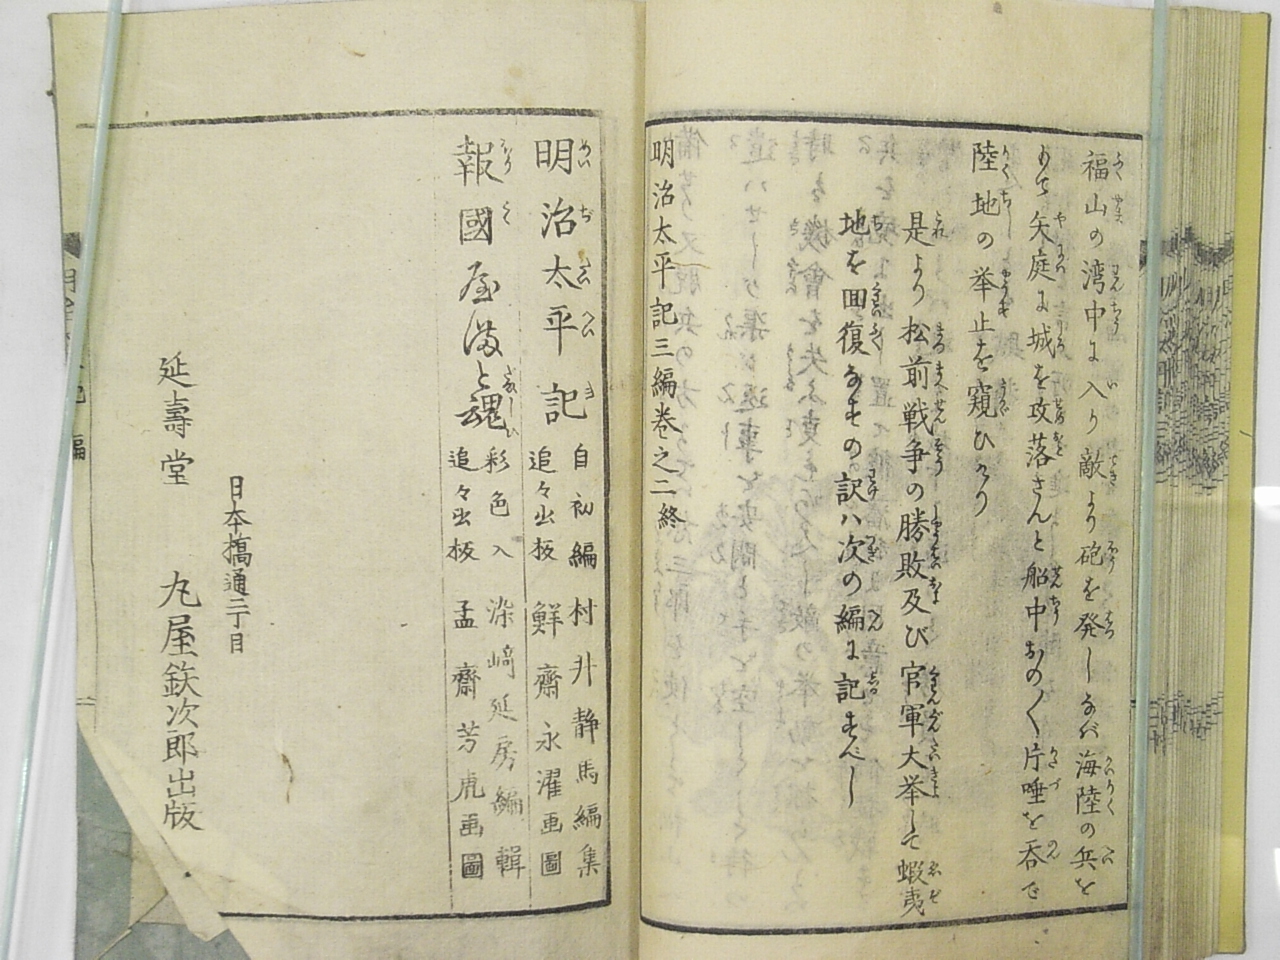 福山の湾中に入り敵より砲を発しなバ海陸の兵を
もて矢庭に城を攻落さんと船中おの〱片唾を呑で
陸地の挙止を窺ひけり
是より松前戦争の勝敗及び官軍大挙して蝦夷
地を回復なすの訳ハ次の編に記すべし
明治太平記三編巻之二終
明治太平記
自初編
追々出板
村井静馬編集
鮮齋永濯画圖
報國屋満と魂
彩色入
追々出板
染﨑延房編輯
孟齋芳虎画圖
日本橋通二丁目
延壽堂 丸屋鉄次郎出版